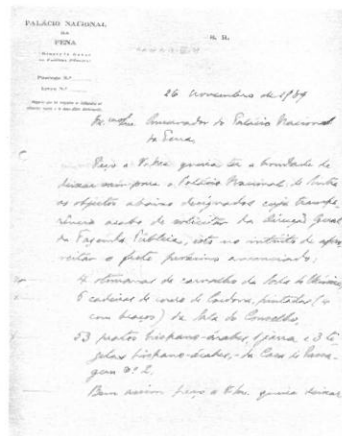 PALÁCIO NACIONAL
DA
PENA
S. R.
26 novembro de 1939
Conservador do Palácio Nacional
da Pena,
Peço a V. Exa queira ter a bondade de
deixar vir para o Palácio Nacional de Sintra
os objectos abaixo designados cuja transfe-
rência acabo de solicitar da Direcção Geral
da Fazenda Pública, isto no intuito de apro-
veitar o frete próximo anunciado:
4 otomanas de carvalho da Sala de
6 cadeiras de couro de Cordova, pintadas (4
com braços) da Sala do Conselho,
53 pratos hispano-árabes, 1 jarra e 3 ti-
gelas hispano-árabes, - da Casa de Passa-
gem nº 2.
Bem assim peço a V. Exa. queira deixar